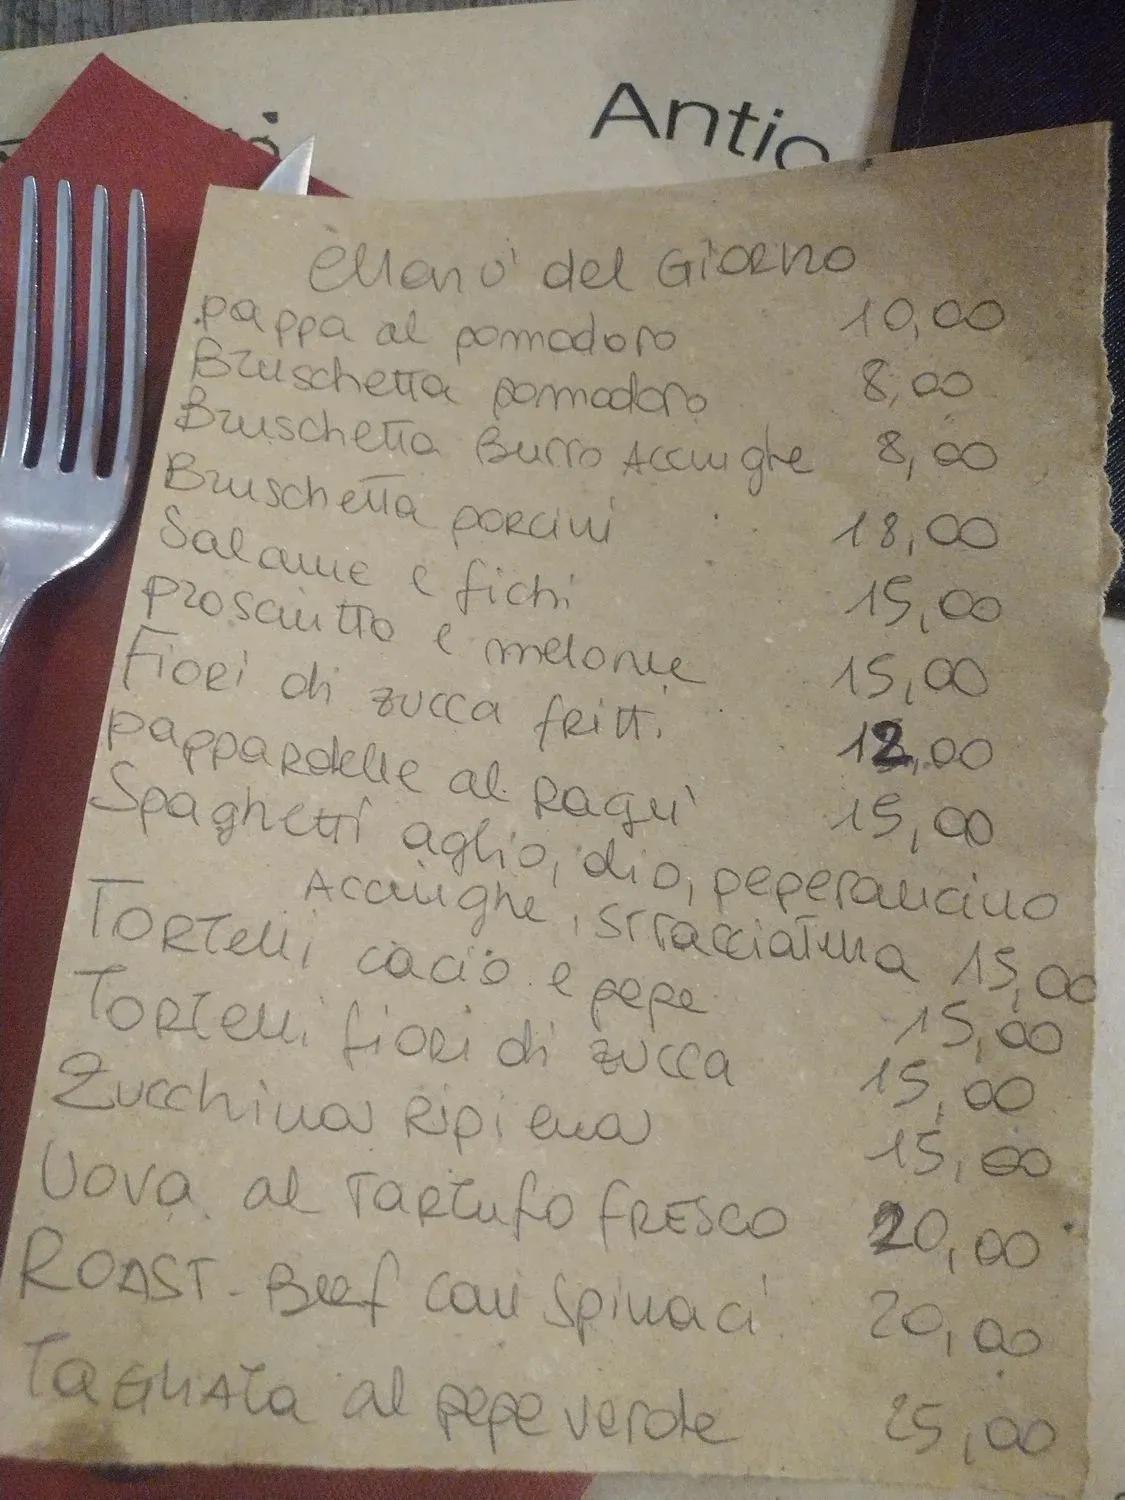 Antic
Menu' del Giorno
pappa al pomodoro 10,00
Bruschetta pomodoro 8,00
Bruschetta Burro Acciughe 8,00
Bruschetta porcini 18,00
Salame e fichi 15,00
prosciutto e melone 15,00
Fiori di zucca fritti 12,00
pappardelle al Ragu' 15,00
Spaghetti aglio, olio, peperoncino
Acciughe, stracciatella 15,00
Tortelli cacio e pepe 15,00
Tortelli fiori di zucca 15,00
Zucchina Ripiena 15,00
Uova al Tartufo fresco 20,00
ROAST-Beef con Spinaci 20,00
Tagliata al pepe verde 25,00